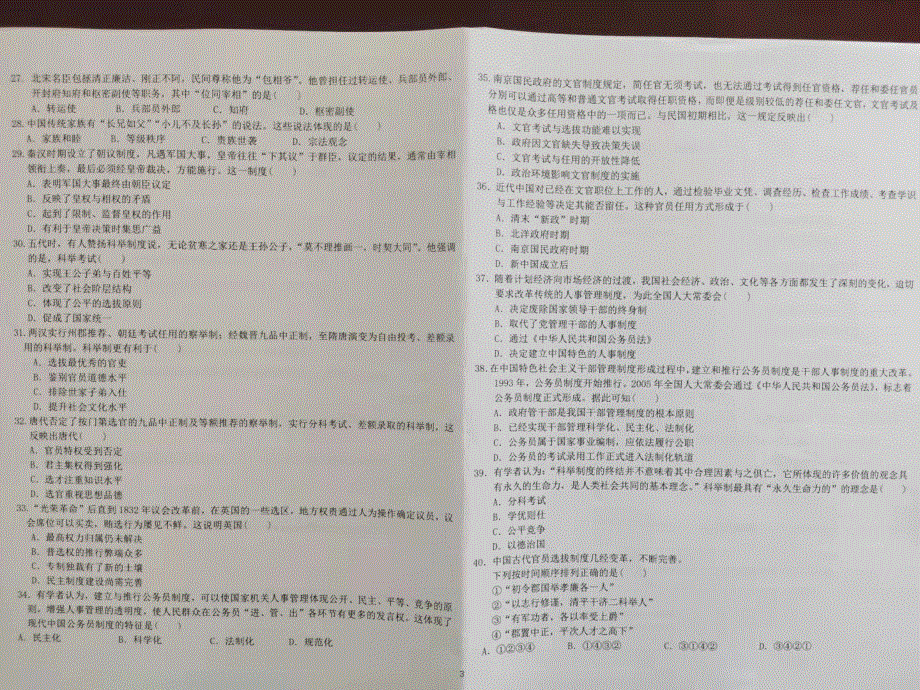 27. 北宋名臣包拯清正廉洁、刚正不阿，民间尊称他为“包相爷”。他曾担任过转运使、兵部员外郎、
开封府知府和枢密副使等职务，其中“位同宰相”的是(　　)
A. 转运使　B. 兵部员外郎　C. 知府　D. 枢密副使
28. 中国传统家族有“长兄如父”“小儿不及长孙”的说法。这些说法体现的是(　　)
A. 家族和睦　B. 等级秩序　C. 贵族世袭　D. 宗法观念
29. 秦汉时期设立了朝议制度，凡遇军国大事，皇帝往往“下其议”于群臣，议定的结果，通常由宰相
领衔上奏，最后必须经皇帝裁决，方能施行。这一制度(　　)
A. 表明军国大事最终由朝臣议定
B. 反映了皇权与相权的矛盾
C. 起到了限制、监督皇权的作用
D. 有利于皇帝决策时集思广益
30. 五代时，有人赞扬科举制度说，无论贫寒之家还是王孙公子，“莫不理推画一，时契大同”。他强调
的是，科举考试(　　)
A. 实现王公子弟与百姓平等
B. 改变了社会阶层结构
C. 体现了公平的选拔原则
D. 促成了国家统一
31. 两汉实行州郡推荐、朝廷考试任用的察举制；经魏晋九品中正制，至隋唐演变为自由投考、差额
录用的科举制。科举制更有利于(　　)
A. 选拔最优秀的官吏
B. 鉴别官员道德水平
C. 排除世家子弟入仕
D. 提升社会文化水平
32. 唐代否定了按门第选官的九品中正制及等额推荐的察举制，实行分科考试、差额录取的科举制，这
反映出唐代(　　)
A. 官员特权受到否定
B. 君主集权得到强化
C. 选才注重知识水平
D. 选官重视思想品德
33. “光荣革命”后直到1832年议会改革前，在英国的一些选区，地方权贵通过人为操作确定议员，议
会席位可以买卖，贿选行为屡见不鲜。这说明英国(　　)
A. 最高权力归属仍未解决
B. 普选权的推行弊端众多
C. 专制独裁有了新的土壤
D. 民主制度建设尚需完善
34. 有学者认为，建立与推行公务员制度，可以使国家机关人事管理体现公开、民主、平等、竞争的原
则，增强人事管理的透明度，使人民群众在公务员“进、管、出”各环节有更多的发言权，这体现了
现代中国公务员制度的特征是(　　)
A. 民主化　B. 科学化　C. 法制化　D. 规范化
35. 南京国民政府的文官制度规定，简任官无须考试，也无法通过考试得到任官资格，荐任和委任官员
分别可以通过高等和普通文官考试取得任职资格，而即便是级别较低的荐任和委任文官，文官考试及
格也仅是众多任用资格中的一项而已。与民国初期相比，这一规定反映出(　　)
A. 文官考试与选拔功能难以实现
B. 政府因文官缺失导致决策失误
C. 文官考试与任用的开放性降低
D. 政治环境影响文官制度的实施
36. 近代中国对已经在文官职位上工作的人，通过检验毕业文凭、调查经历、检查工作成绩、考查学识
与工作经验等决定其能否留任。这种官员任用方式形成于(　　)
A. 清末“新政”时期
B. 北洋政府时期
C. 南京国民政府时期
D. 新中国成立后
37. 随着计划经济向市场经济的过渡，我国社会经济、政治、文化等各方面都发生了深刻的变化，迫切
要求改革传统的人事管理制度，为此全国人大常委会(　　)
A. 决定废除国家领导干部的终身制
B. 取代了党管理干部的人事制度
C. 通过《中华人民共和国公务员法》
D. 决定建立中国特色的人事制度
38. 在中国特色社会主义干部管理制度形成过程中，建立和推行公务员制度是干部人事制度的重大改革。
1993年，公务员制度开始推行，2005年全国人大常委会通过《中华人民共和国公务员法》，标志着
公务员制度正式形成。据此可知(　　)
A. 政府管干部是我国干部管理制度的根本原则
B. 已经实现干部管理科学化、民主化、法制化
C. 公务员属于国家事业编制，应依法履行公职
D. 公务员的考试录用工作正式进入法制化轨道
39. 有学者认为：“科举制度的终结并不意味着其中合理因素与之俱亡，它所体现的许多价值的观念具
有永久的生命力，是人类社会共同的基本理念。”科举制最具有“永久生命力的”的理念是(　　)
A. 分科考试
B. 学优则仕
C. 公平竞争
D. 以德治国
40. 中国古代官员选拔制度几经变革，不断完善。
下列按时间顺序排列正确的是(　　)
①“初令郡国举孝廉各一人”
②“以志行修谨、清平干济二科举人”
③“有军功者，各以率受上爵”
④“郡置中正，平次人才之高下”
A. ①②③④　B. ①④③②　C. ③①④②　D. ③④②①
3